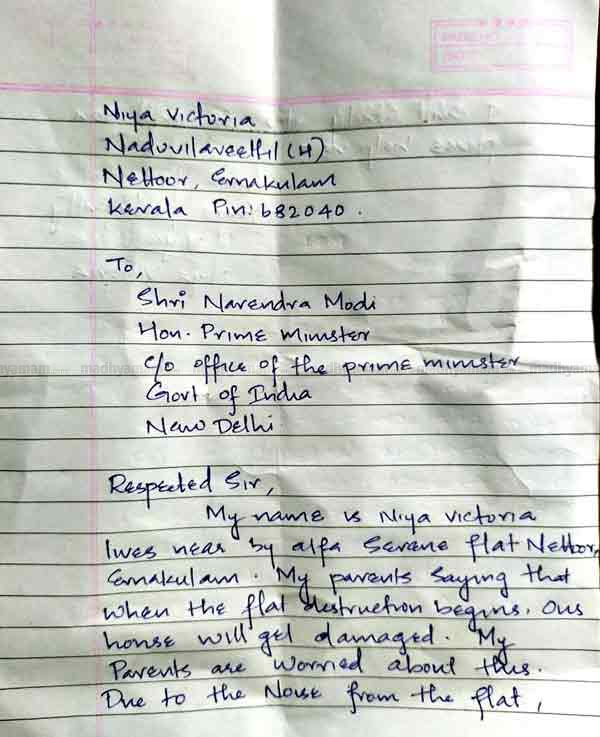 Niya Victoria
Naduvilaveethil (H)
Nettoor, Ernakulam
Kerala Pin: 682040.
To,
Shri Narendra Modi
Hon. Prime Minister
c/o office of the prime minister
Govt of India
New Delhi.
Respected Sir,
My name is Niya Victoria
lives near by alfa Serene flat Nettoor,
Ernakulam. My parents saying that
when the flat destruction begins. Our
house will get damaged. My
Parents are worried about this.
Due to the Noise from the flat,
madhyamam